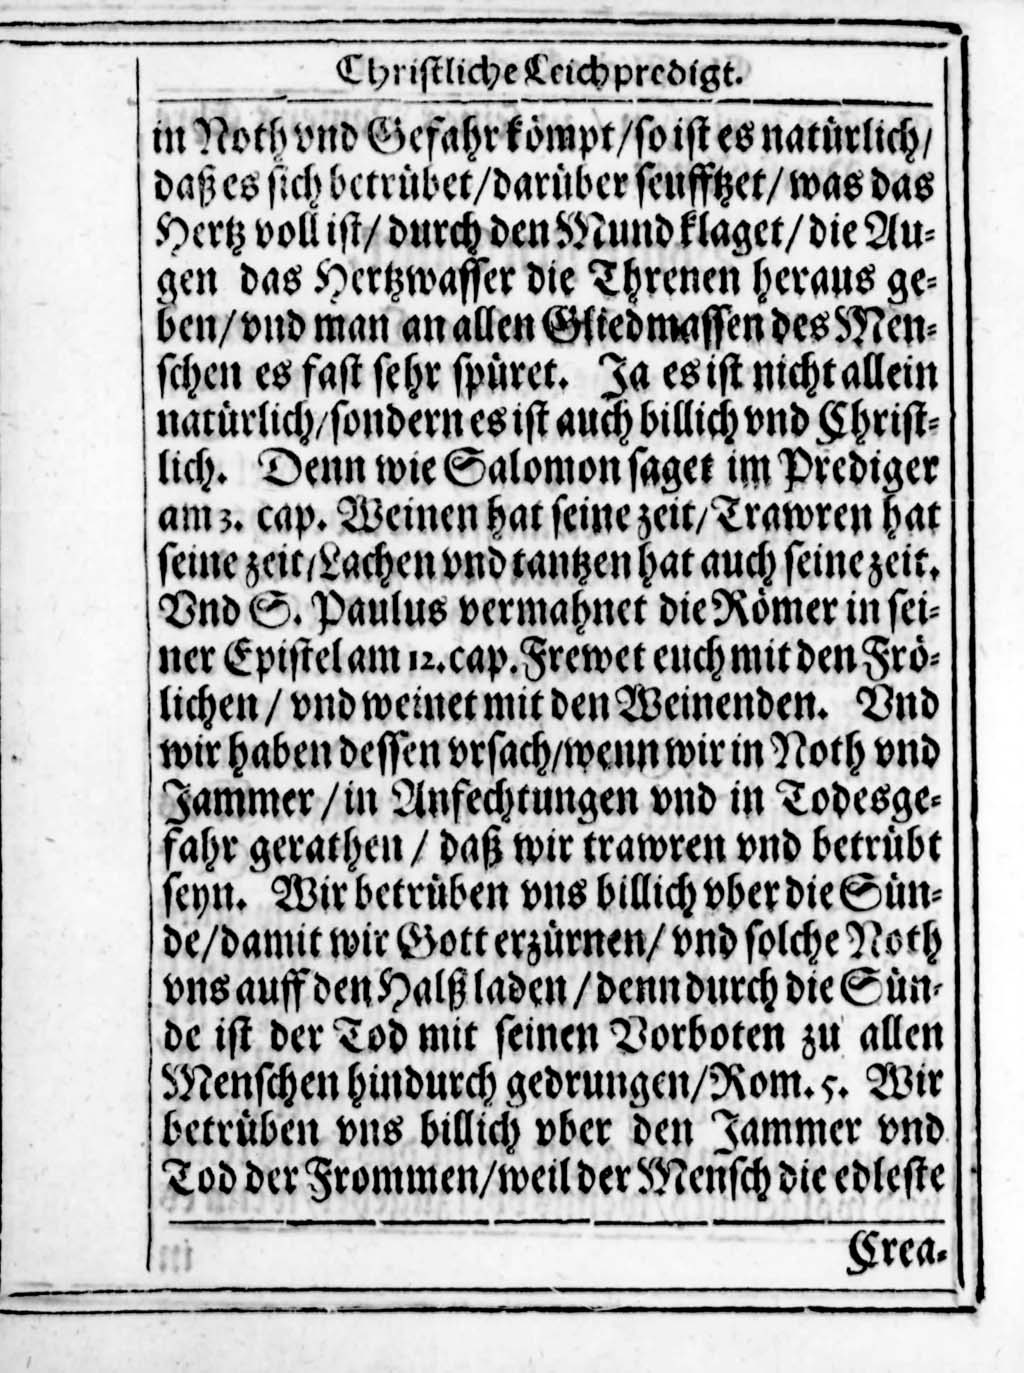 Christliche Leichpredigt.
in Noth vnd Gefahr kömpt/so ist es natürlich/
daß es sich betrübet/darüber seufftzet/was das
Hertz voll ist/durch den Mund klaget/die Au-
gen das Hertzwasser die Threnen heraus ge-
ben/vnd man an allen Gliedmassen des Men-
schen es fast sehr spüret. Ja es ist nicht allein
natürlich/sondern es ist auch billich vnd Christ-
lich. Denn wie Salomon saget im Prediger
am 3. cap. Weinen hat seine zeit/Trawren hat
seine zeit/Lachen vnd tantzen hat auch seine zeit.
Vnd S. Paulus vermahnet die Römer in sei-
ner Epistel am 12. cap. Frewet euch mit den Frö-
lichen/vnd weinet mit den Weinenden. Vnd
wir haben dessen vrsach/wenn wir in Noth vnd
Jammer/in Anfechtungen vnd in Todesge-
fahr gerathen/daß wir trawren vnd betrübt
seyn. Wir betrüben vns billich vber die Sün-
de/damit wir Gott erzürnen/vnd solche Noth
vns auff den Halß laden/denn durch die Sün-
de ist der Tod mit seinen Vorboten zu allen
Menschen hindurch gedrungen/Rom. 5. Wir
betrüben vns billich vber den Jammer vnd
Tod der Frommen/weil der Mensch die edleste
Crea-